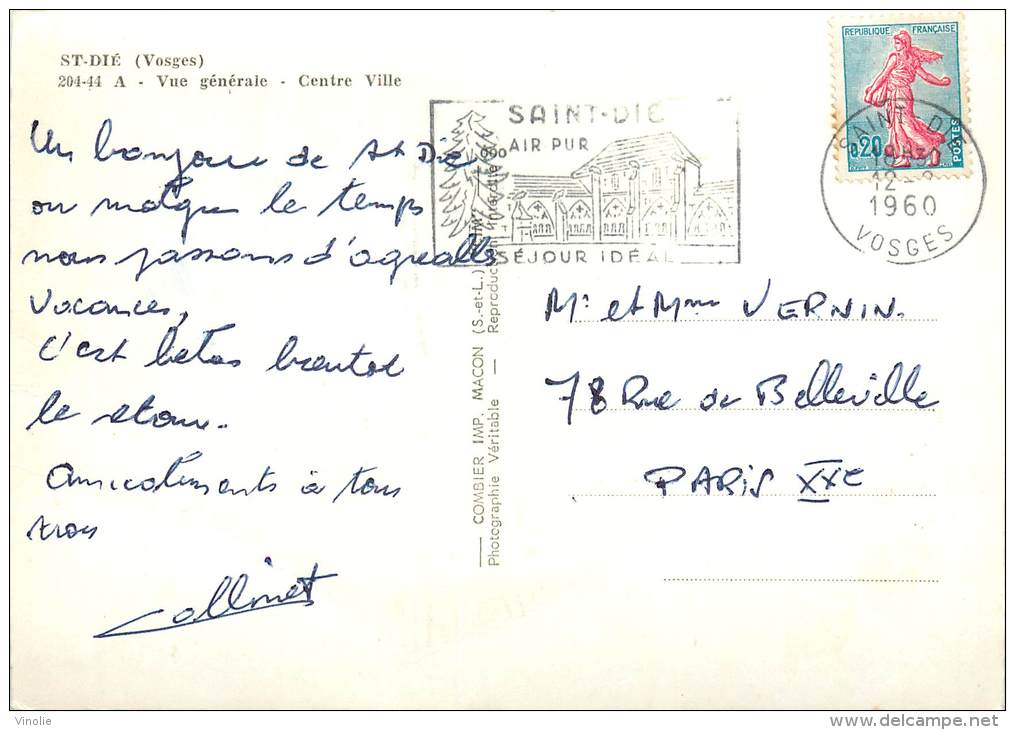 ST-DIÉ (Vosges)
204-44 A - Vue générale - Centre Ville
Un bonjour de St Dié
ou malgré le temps
nous passons d'agréables
vacances,
c'est hélas bientot
le retour.
Amicalements à tous
trois
Collinet
SAINT-DIÉ
AIR PUR
SÉJOUR IDÉAL
REPUBLIQUE FRANÇAISE
0,20
POSTES
SAINT DIÉ
12-8
1960
VOSGES
COMBIER IMP. MACON (S.-et-L.)
Photographie Véritable — Reproduction interdite
Mr et Mme VERNIN.
78 Rue de Belleville
PARIS XXe
Vinolie
delcampe.net